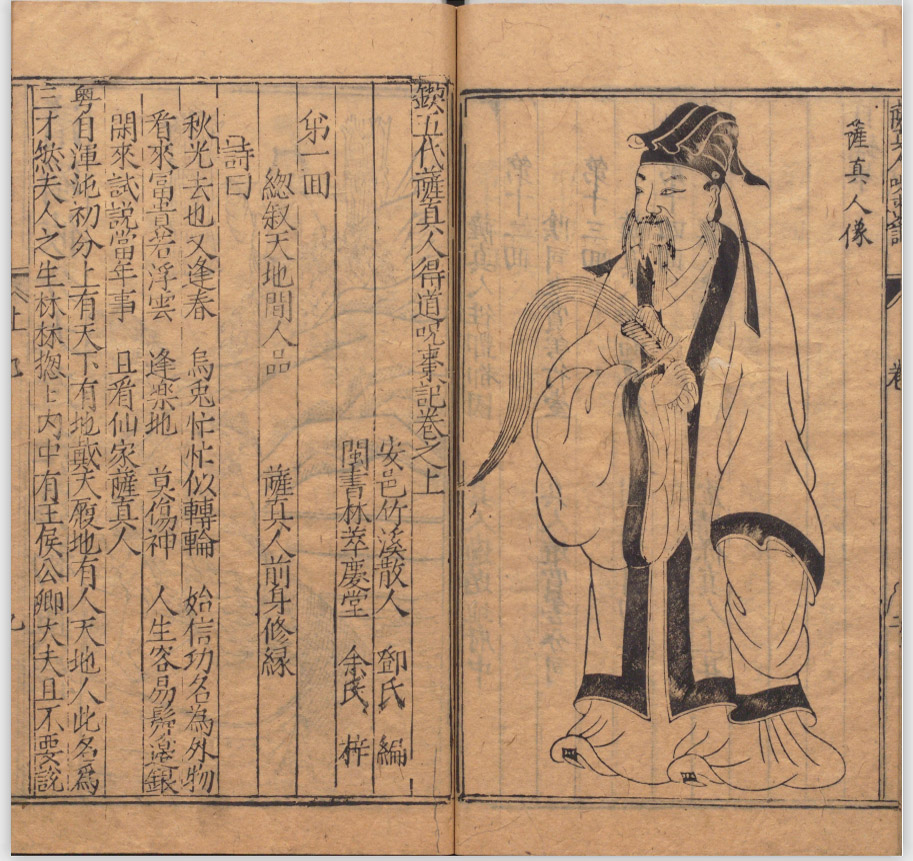 薩真人像
鍥五代薩真人得道呪棗記卷之上
安邑竹溪散人 鄧氏 編
閩書林萃慶堂 余氏 梓
第一回
緫叙天地間人品 薩真人前身修縁
詩曰
秋光去也又逢春 烏兎忙忙似轉輪 始信功名為外物
看來富貴若浮雲 逢楽地 莫傷神 人生容易鬂邉銀
閑來試説當年事 且看仙家薩真人
粤自渾沌初分上有天下有地戴天履地有人天地人此名爲
三才然夫人之生林林揔揔内中有王侯公卿大夫且不要説